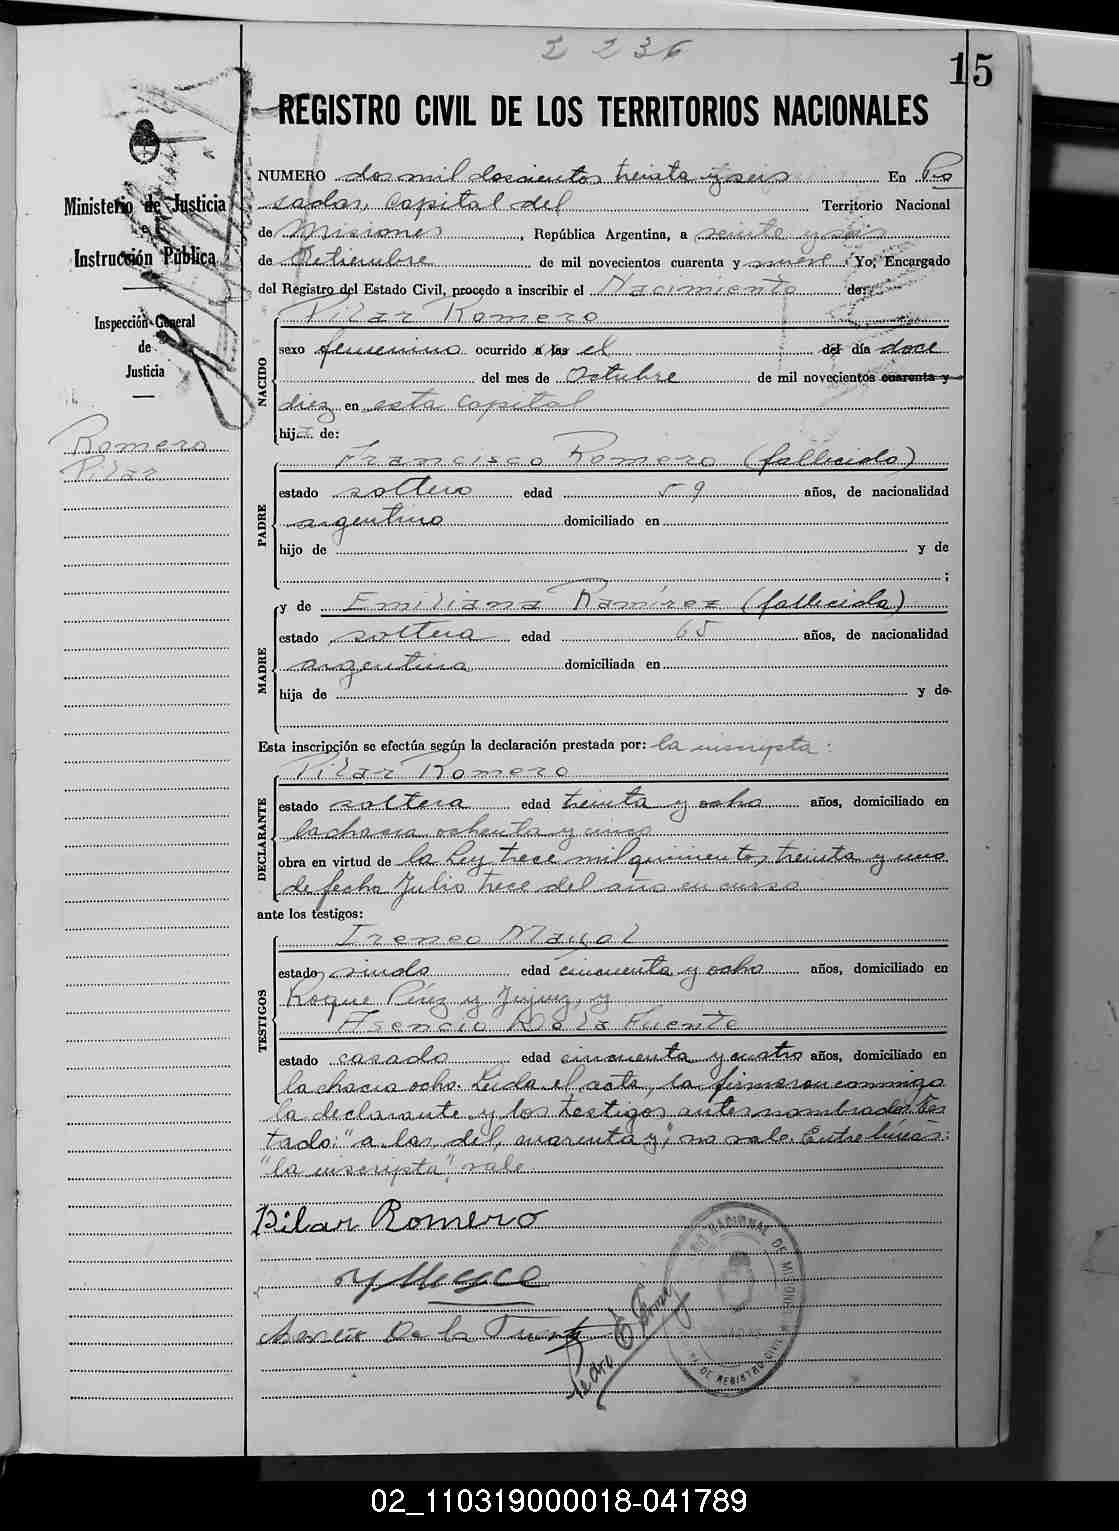 2 236
15
REGISTRO CIVIL DE LOS TERRITORIOS NACIONALES
Ministerio de Justicia
e
Instrucción Pública
Inspección General
de
Justicia
Romero
Pilar
NUMERO dos mil doscientos treinta y seis En Po
sadas, Capital del Territorio Nacional
de Misiones, República Argentina, a veinte y seis
de Setiembre de mil novecientos cuarenta y nueve. Yo, Encargado
del Registro del Estado Civil, procedo a inscribir el Nacimiento de:
NACIDO
Pilar Romero
sexo femenino ocurrido a las el del día doce
del mes de Octubre de mil novecientos cuarenta y
diez en esta Capital
hija de:
PADRE
Francisco Romero (fallecido)
estado soltero edad 59 años, de nacionalidad
argentino domiciliado en
hijo de y de
;
MADRE
y de Emiliana Ramírez (fallecida)
estado soltera edad 65 años, de nacionalidad
argentina domiciliada en
hija de y de
Esta inscripción se efectúa según la declaración prestada por: la inscripta:
DECLARANTE
Pilar Romero
estado soltera edad treinta y ocho años, domiciliado en
la chacra ochenta y cinco
obra en virtud de la Ley trece mil quinientos treinta y uno
de fecha Julio trece del año en curso
ante los testigos:
TESTIGOS
Ireneo Mayol
estado viudo edad cincuenta y ocho años, domiciliado en
Roque Pérez y Jujuy, y
Asencio De la Fuente
estado casado edad cincuenta y cuatro años, domiciliado en
la chacra ocho. Leída el acta, la firmaron conmigo
la declarante y los testigos antes nombrados. Tes
tado: "a las, del, cuarenta y", no vale. Entre líneas:
"la inscripta", vale
Pilar Romero
Asencio De la Fuente
Pedro E
NACIONAL DE MISIONES
DE REGISTRO CIVIL
02_110319000018-041789